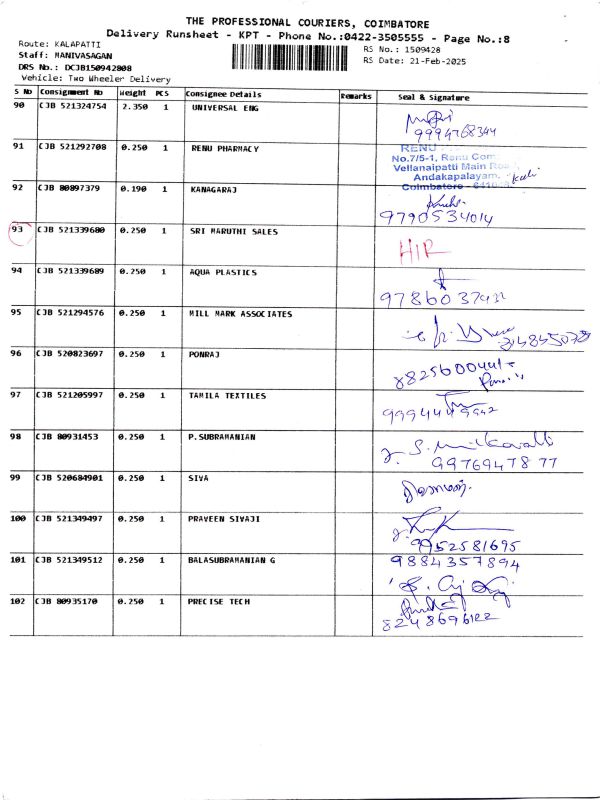 THE PROFESSIONAL COURIERS, COIMBATORE
Delivery Runsheet - KPT - Phone No.:0422-3505555 - Page No.:8
Route: KALAPATTI
Staff: MANIVASAGAN
DRS No.: DCJB150942808
Vehicle: Two Wheeler Delivery
RS No.: 1509428
RS Date: 21-Feb-2025
S No Consignment No Weight PCS Consignee Details Remarks Seal & Signature
90 CJB 521324754 2.350 1 UNIVERSAL ENG
9994768344
91 CJB 521292708 0.250 1 RENU PHARMACY
RENU
No.7/5-1, Renu Com
Vellanaipatti Main Road
Andakapalayam,
Coimbatore - 641
92 CJB 80897379 0.190 1 KANAGARAJ
9790534014
93 CJB 521339680 0.250 1 SRI MARUTHI SALES
HIR
94 CJB 521339689 0.250 1 AQUA PLASTICS
9786037432
95 CJB 521294576 0.250 1 MILL MARK ASSOCIATES
96 CJB 520823697 0.250 1 PONRAJ
97 CJB 521205997 0.250 1 TAMILA TEXTILES
9994449942
98 CJB 80931453 0.250 1 P.SUBRAMANIAN
9976947877
99 CJB 520684901 0.250 1 SIVA
100 CJB 521349497 0.250 1 PRAVEEN SIVAJI
9952581695
101 CJB 521349512 0.250 1 BALASUBRAMANIAN G
9884357894
102 CJB 80935170 0.250 1 PRECISE TECH
8248696122